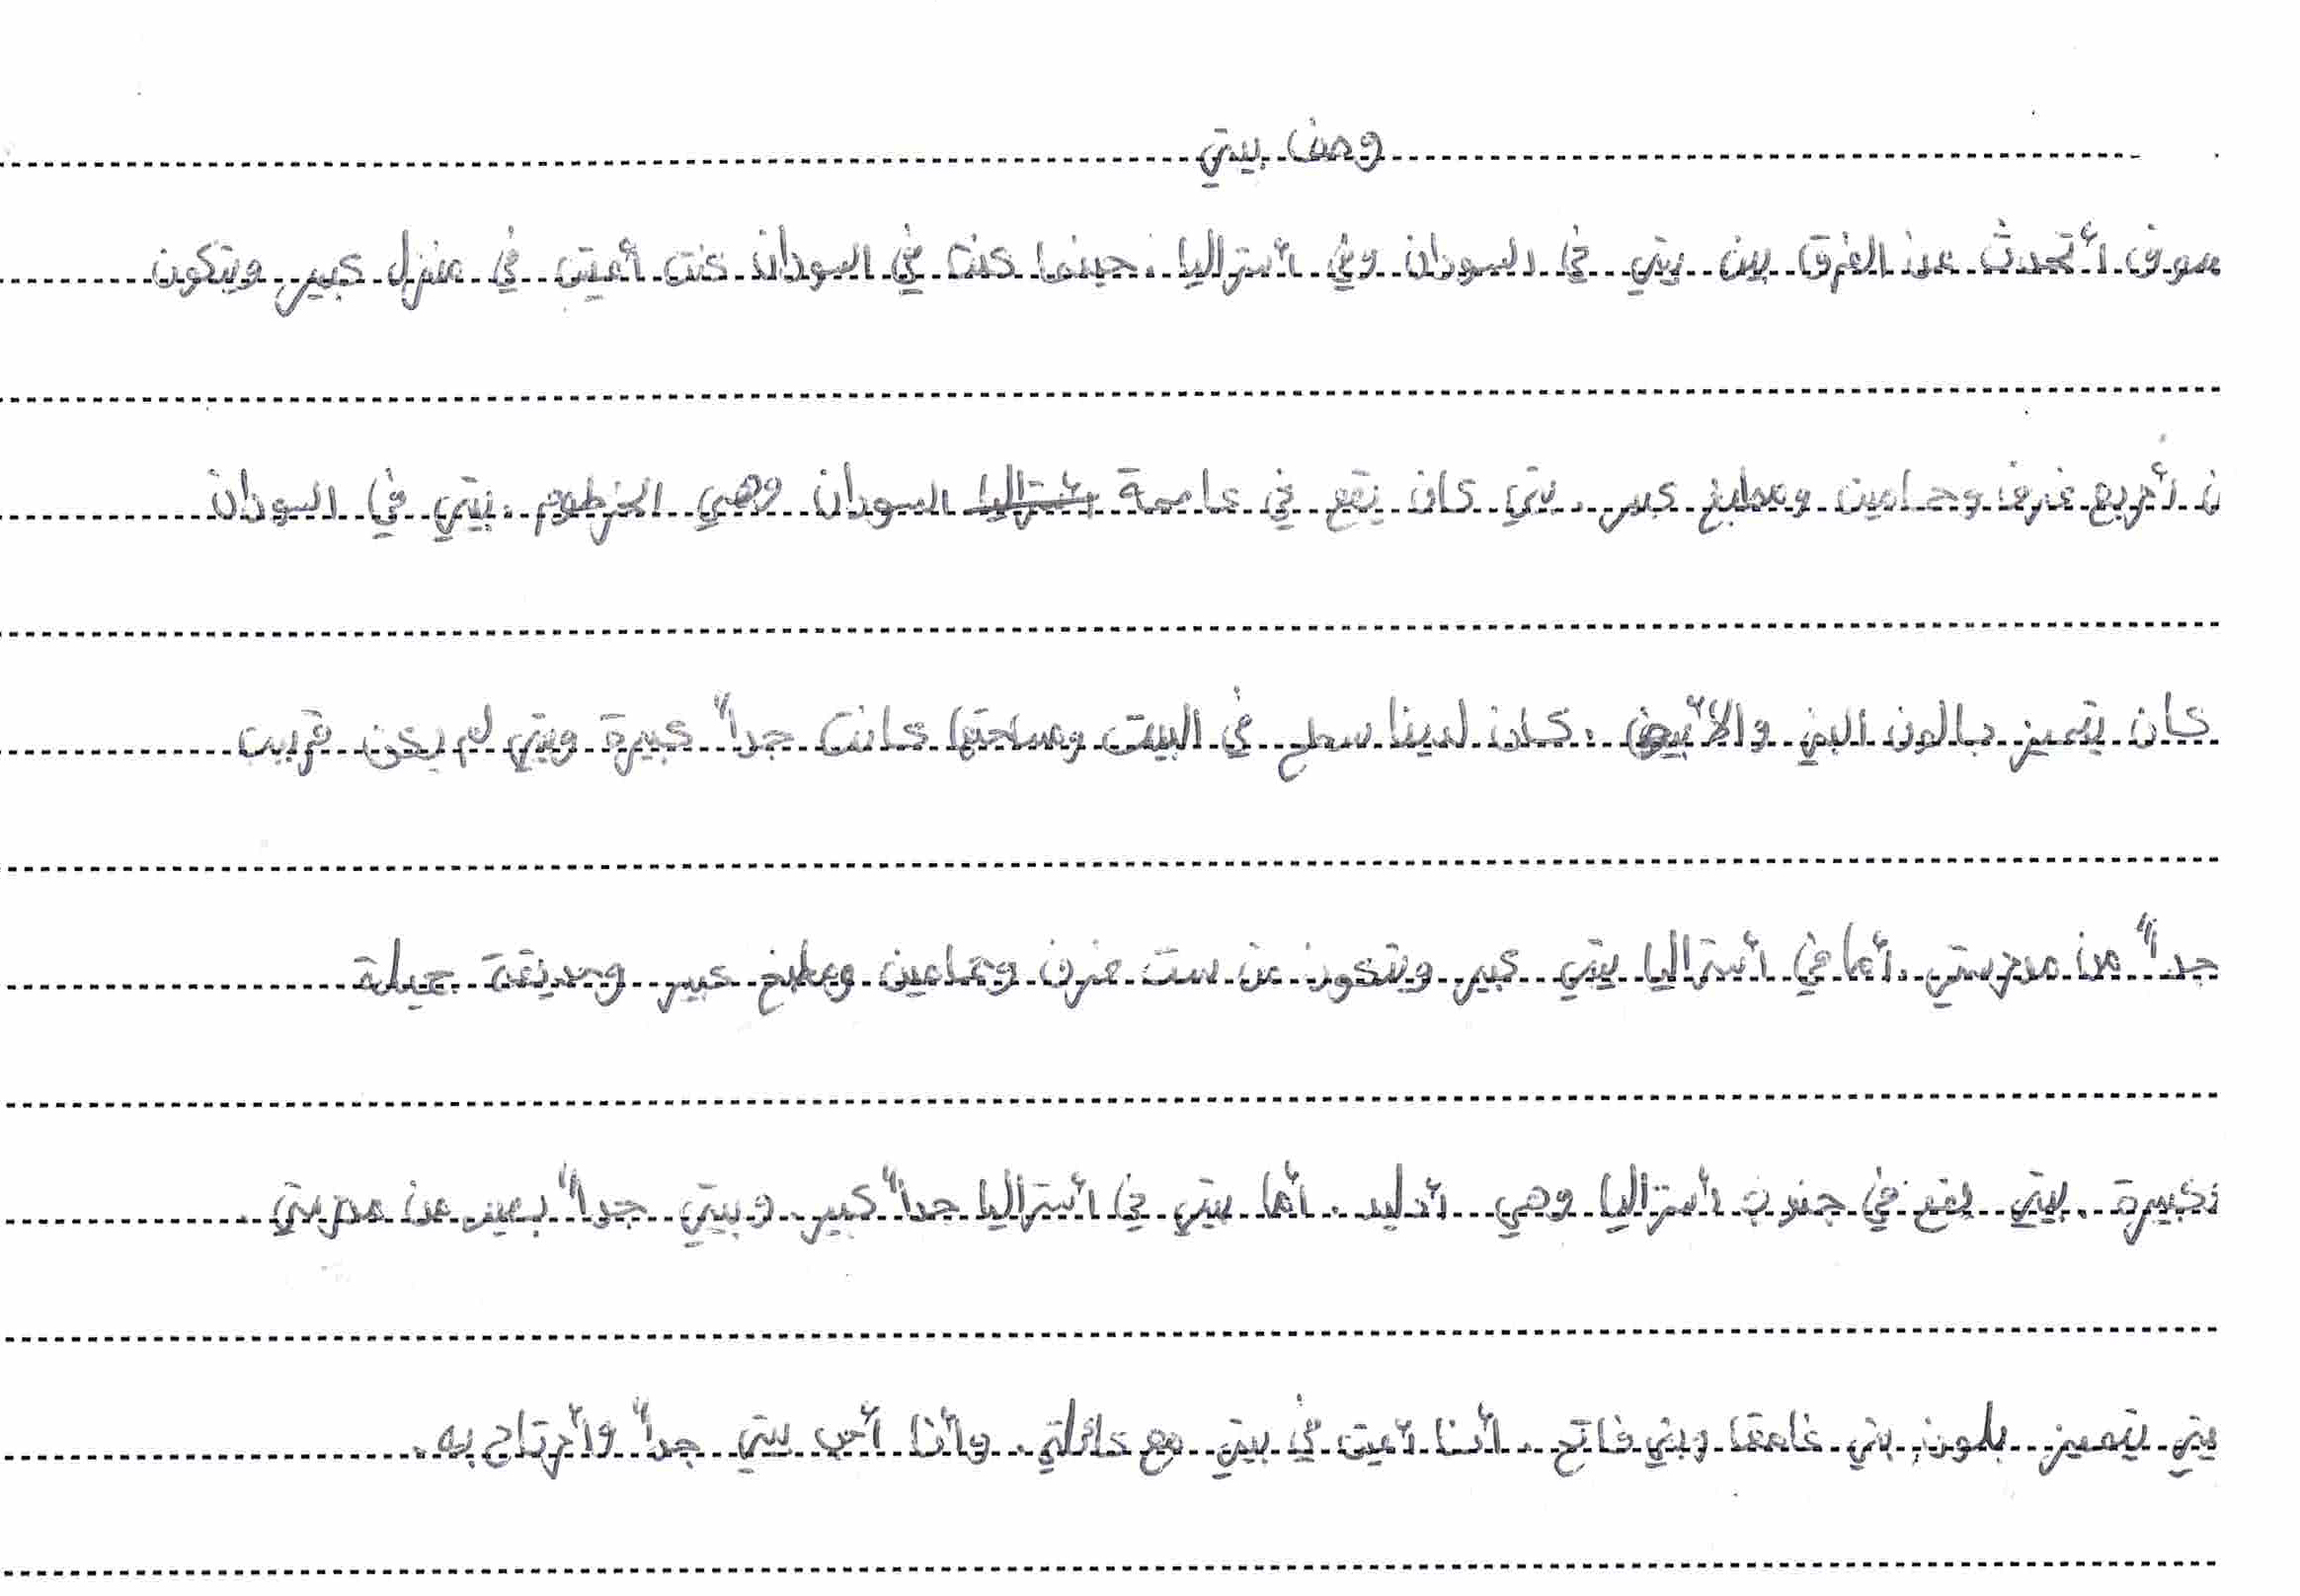 وصف بيتي
سوف أتحدث عن الفرق بين بيتي في السودان وفي أستراليا. حينما كنت في السودان كنت أعيش في منزل كبير ويتكون
ن أربع غرف وحمامين ومطبخ كبير. بيتي كان يقع في عاصمة أستراليا السودان وهي الخرطوم. بيتي في السودان
كان يتميز بالون البني والأبيض. كان لدينا سطح في البيت ومساحتها كانت جداً كبيرة وبيتي لم يكن قريب
جداً من مدرستي. أما في أستراليا بيتي كبير ويتكون من ست غرف وحمامين ومطبخ كبير وحديقة جميلة
وكبيرة. بيتي يقع في جنوب أستراليا وهي أدليد. أما بيتي في أستراليا جداً كبير. وبيتي جداً بعيد عن مدرستي.
بيتي يتميز بلون بني غامقا وبني فاتح. أنا أعيش في بيتي مع عائلتي. وأنا أحب بيتي جداً وأرتاح به.